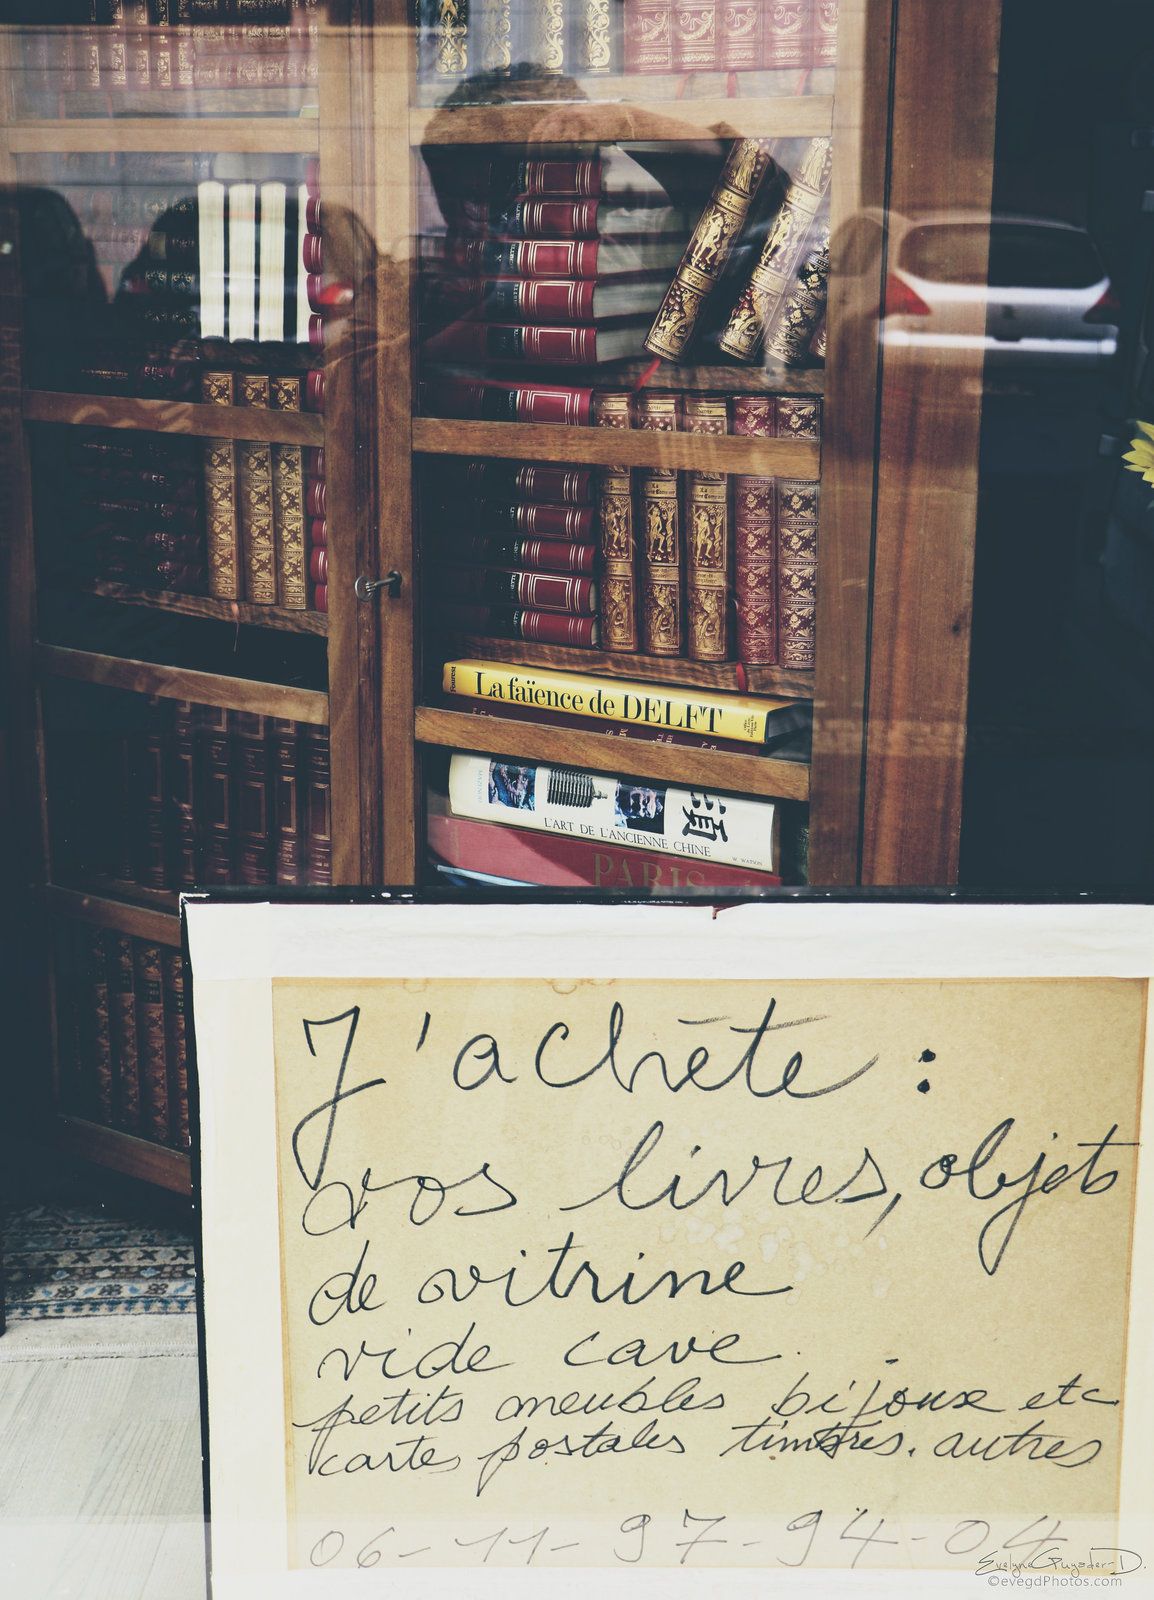 La faïence de DELFT
L'ART DE L'ANCIENNE CHINE
W. WATSON
PARIS
J'achète :
vos livres, objets
de vitrine
vide cave.
petits meubles bijoux etc
cartes postales timbres. autres
06-11-97-94-04
Evelyne Guyader-D.
©evegdPhotos.com